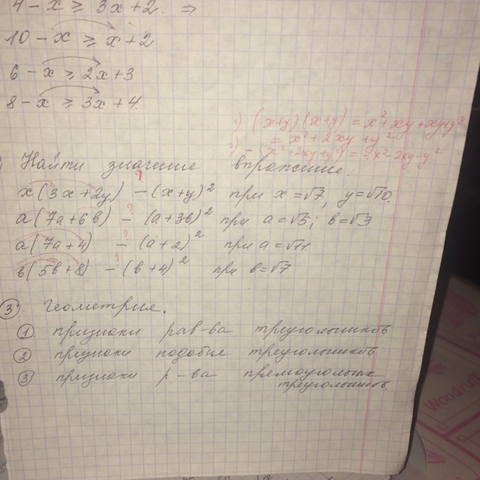 4 - x ≥ 3x + 2. ⇒
10 - x ≥ x + 2
6 - x ≥ 2x + 3
8 - x ≥ 3x + 4
1) (x+y)(x+y) = x² + xy + xy + y²
= x² + 2xy + y²
2) -(x² + 2xy + y²) = -x² - 2xy - y²
Найти значение впражение
?
x(3x + 2y) - (x+y)² при x = √7, y = √10
a(7a + 6b) - (a + 3b)² при a = √5; b = √3
a(7a + 4) - (a + 2)² при a = √11
b(5b + 8) - (b + 4)² при b = √7
③ Геометрия.
① признаки рав-ва треугольников
② признаки подобия треугольников
③ признаки р-ва прямоугольных
треугольников